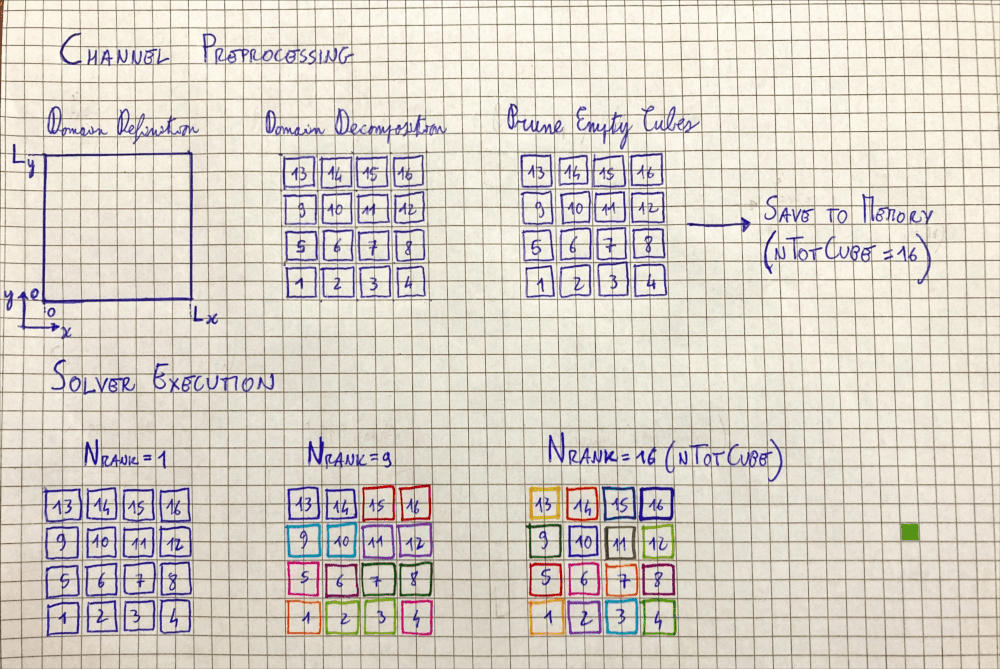 CHANNEL PREPROCESSING
Domain Definition
Domain Decomposition
Prune Empty Cubes
Ly
13 14 15 16
13 14 15 16
9 10 11 12
9 10 11 12
SAVE TO MEMORY
(nTotCUBE = 16)
5 6 7 8
5 6 7 8
1 2 3 4
1 2 3 4
y 0
0
Lx
x
SOLVER EXECUTION
NRANK = 1
NRANK = 9
NRANK = 16 (nTotCUBE)
13 14 15 16
13 14 15 16
13 14 15 16
9 10 11 12
9 10 11 12
9 10 11 12
5 6 7 8
5 6 7 8
5 6 7 8
1 2 3 4
1 2 3 4
1 2 3 4